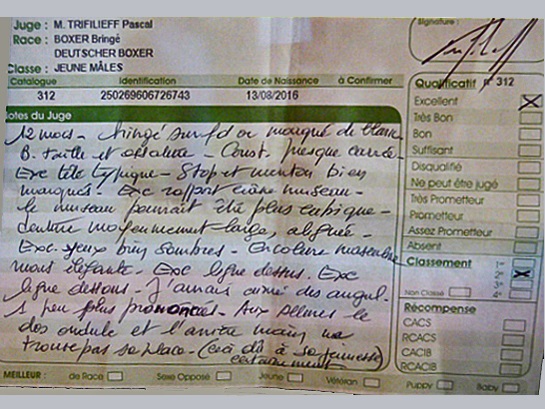 Juge : M. TRIFILIEFF Pascal
Race : BOXER Bringé
DEUTSCHER BOXER
Classe : JEUNE MÂLES
Signature :
Catalogue Identification Date de Naissance à Confirmer
312 250269606726743 13/08/2016
Notes du Juge
12 mois - bringé sur fd or marqué de blanc
B. taille et ossature - Const. presque carrée -
Exc tête typique - Stop et menton bien
marqués. Exc rapport crâne museau -
le museau pourrait être plus cubique -
denture moyennement large, alignée -
Exc. yeux bien sombres - Encolure musculeuse
mais élégante - Exc ligne dessus. Exc
ligne dessous - J'aurais aimé des angul.
1 peu plus prononcées - Aux allures le
dos ondule et l'arrière main ne
trouve pas sa place - (ceci dû à sa jeunesse)
certainement
Qualificatif n° 312
Excellent
Très Bon
Bon
Suffisant
Disqualifié
Ne peut être jugé
Très Prometteur
Prometteur
Assez Prometteur
Absent
Classement
Non Classé
Récompense
CACS
RCACS
CACIB
RCACIB
MEILLEUR : de Race Sexe Opposé Jeune Vétéran Puppy Baby